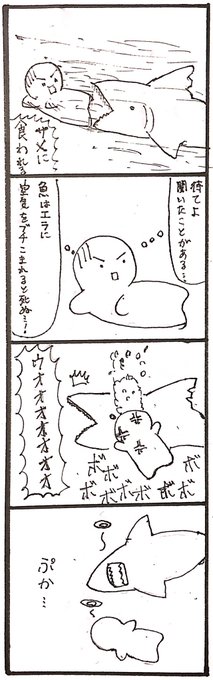 サメに
食われる
待てよ
聞いたことがある…
魚はエラに
空気をブチこまれると死ぬ…!
ボボボボボボボボボ
ウオオオオオオオオ
ぷか…